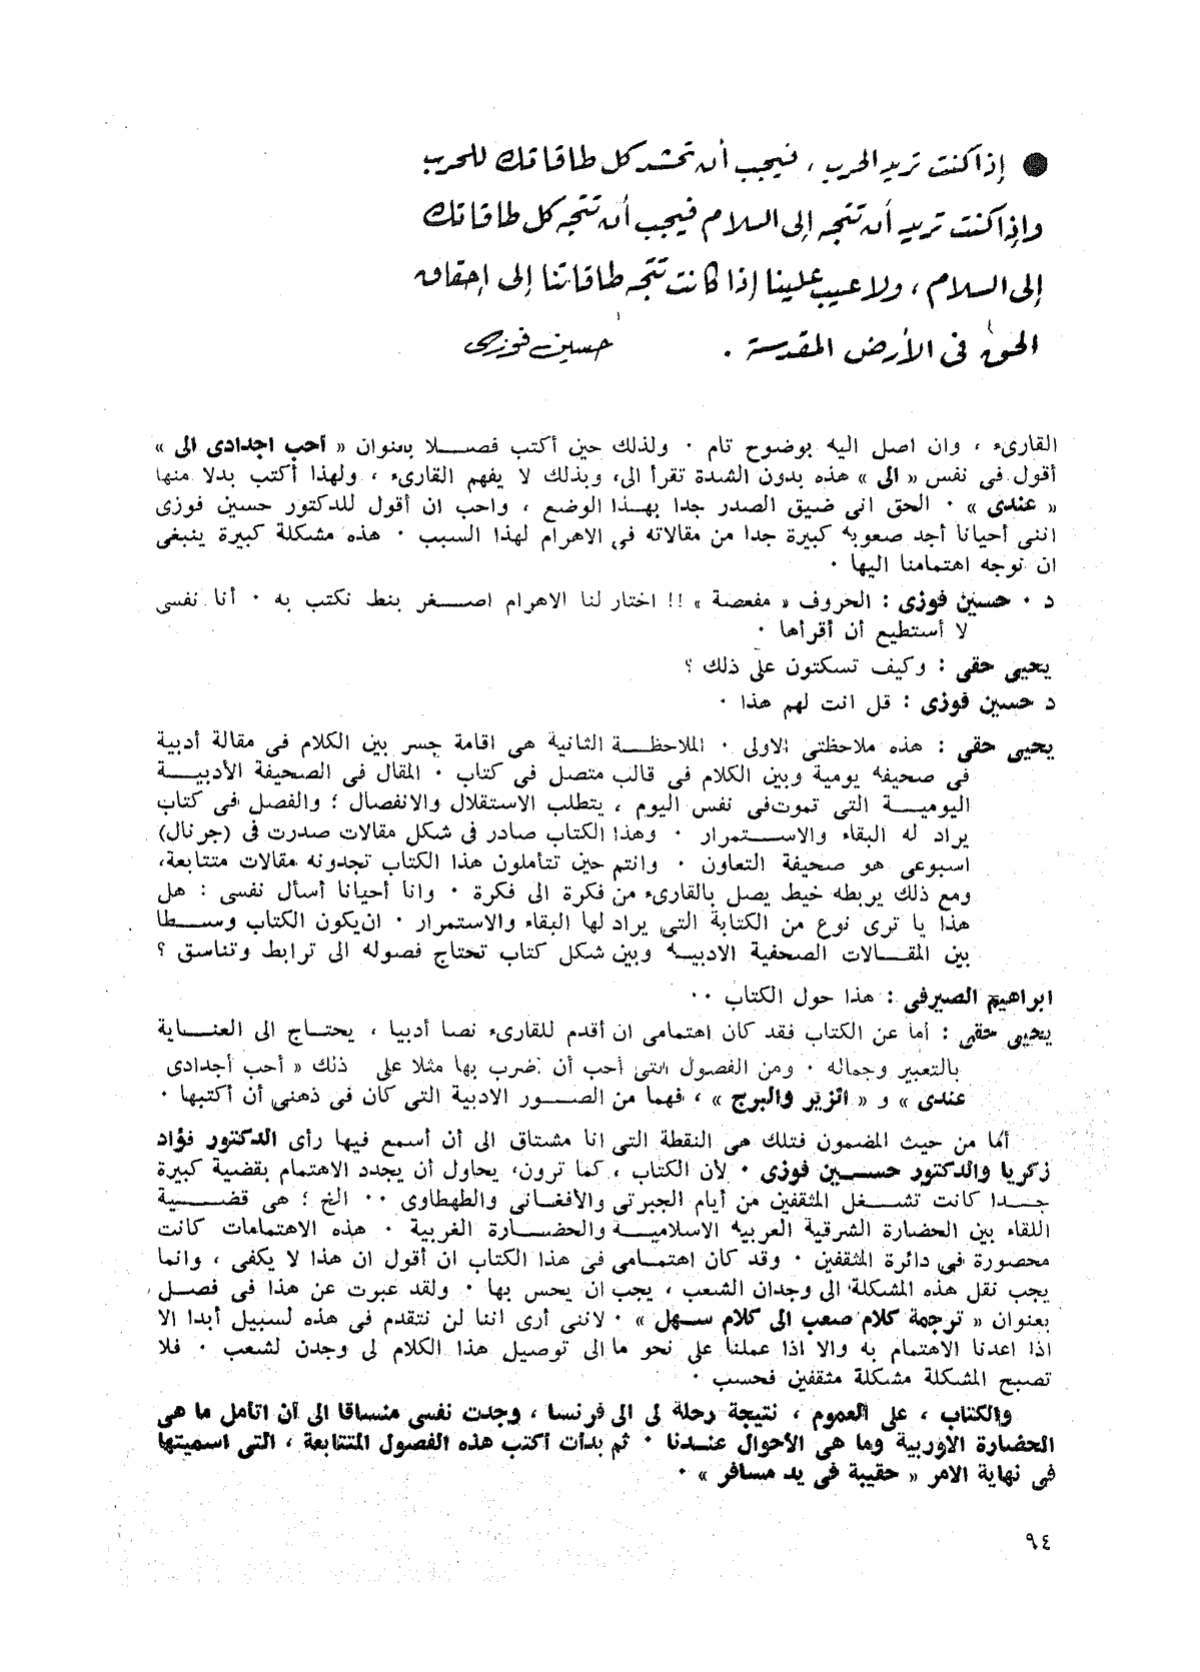 ● إذا كنت تريد الحرب ، فيجب أن تحشد كل طاقاتك للحرب
وإذا كنت تريد أن تتجه إلى السلام فيجب أن تتجه كل طاقاتك
إلى السلام ، ولا عيب علينا إذا كانت تتجه طاقاتنا إلى إحقاق
الحق فى الأرض المقدسة . حسين فوزى
القارىء ، وان اصل اليه بوضوح تام ٠ ولذلك حين أكتب فصلا بعنوان « أحب اجدادى الى »
أقول فى نفس « الى » هذه بدون الشدة تقرأ الى، وبذلك لا يفهم القارىء ، ولهذا أكتب بدلا منها
« عندى » ٠ الحق انى ضيق الصدر جدا بهذا الوضع ، واحب ان أقول للدكتور حسين فوزى
اننى أحيانا أجد صعوبة كبيرة جدا من مقالاته فى الاهرام لهذا السبب ٠ هذه مشكلة كبيرة ينبغى
ان نوجه اهتمامنا اليها ٠
د ٠ حسين فوزى : الحروف « مفعصة » !! اختار لنا الاهرام اصغر بنط نكتب به ٠ أنا نفسى
لا أستطيع أن أقرأها ٠
يحيى حقى : وكيف تسكتون على ذلك ؟
د حسين فوزى : قل انت لهم هذا ٠
يحيى حقى : هذه ملاحظتى الاولى ٠ الملاحظة الثانية هى اقامة جسر بين الكلام فى مقالة أدبية
فى صحيفة يومية وبين الكلام فى قالب متصل فى كتاب ٠ المقال فى الصحيفة الأدبية
اليومية التى تموت فى نفس اليوم ، يتطلب الاستقلال والانفصال ؛ والفصل فى كتاب
يراد له البقاء والاستمرار ٠ وهذا الكتاب صادر فى شكل مقالات صدرت فى (جرنال)
اسبوعى هو صحيفة التعاون ٠ وانتم حين تتأملون هذا الكتاب تجدونه مقالات متتابعة،
ومع ذلك يربطه خيط يصل بالقارىء من فكرة الى فكرة ٠ وانا أحيانا أسأل نفسى : هل
هذا يا ترى نوع من الكتابة التى يراد لها البقاء والاستمرار ٠ ان يكون الكتاب وسطا
بين المقالات الصحفية الادبية وبين شكل كتاب تحتاج فصوله الى ترابط وتناسق ؟
ابراهيم الصيرفى : هذا حول الكتاب ٠٠
يحيى حقى : أما عن الكتاب فقد كان اهتمامى ان أقدم للقارىء نصا أدبيا ، يحتاج الى العناية
بالتعبير وجماله ٠ ومن الفصول التى أحب أن نضرب بها مثلا على ذلك « أحب أجدادى
عندى » و « الزير والبرج » ، فهما من الصور الادبية التى كان فى ذهنى أن أكتبها ٠
أما من حيث المضمون فتلك هى النقطة التى انا مشتاق الى أن أسمع فيها رأى الدكتور فؤاد
زكريا والدكتور حسين فوزى ٠ لأن الكتاب ، كما ترون، يحاول أن يجدد الاهتمام بقضية كبيرة
جدا كانت تشغل المثقفين من أيام الجبرتى والأفغانى والطهطاوى ٠٠ الخ ؛ هى قضية
اللقاء بين الحضارة الشرقية العربية الاسلامية والحضارة الغربية ٠ هذه الاهتمامات كانت
محصورة فى دائرة المثقفين ٠ وقد كان اهتمامى فى هذا الكتاب ان أقول ان هذا لا يكفى ، وانما
يجب نقل هذه المشكلة الى وجدان الشعب ، يجب ان يحس بها ٠ ولقد عبرت عن هذا فى فصل
بعنوان « ترجمة كلام صعب الى كلام سهل » ٠ لاننى أرى اننا لن نتقدم فى هذه لسبيل أبدا الا
اذا اعدنا الاهتمام به والا اذا عملنا على نحو ما الى توصيل هذا الكلام لى وجدن لشعب ٠ فلا
تصبح المشكلة مشكلة مثقفين فحسب ٠
والكتاب ، على العموم ، نتيجة رحلة لى الى فرنسا ، وجدت نفسى منساقا الى أن اتأمل ما هى
الحضارة الاوربية وما هى الأحوال عندنا ٠ ثم بدأت أكتب هذه الفصول المتتابعة ، التى اسميتها
فى نهاية الامر « حقيبة فى يد مسافر » ٠
٩٤